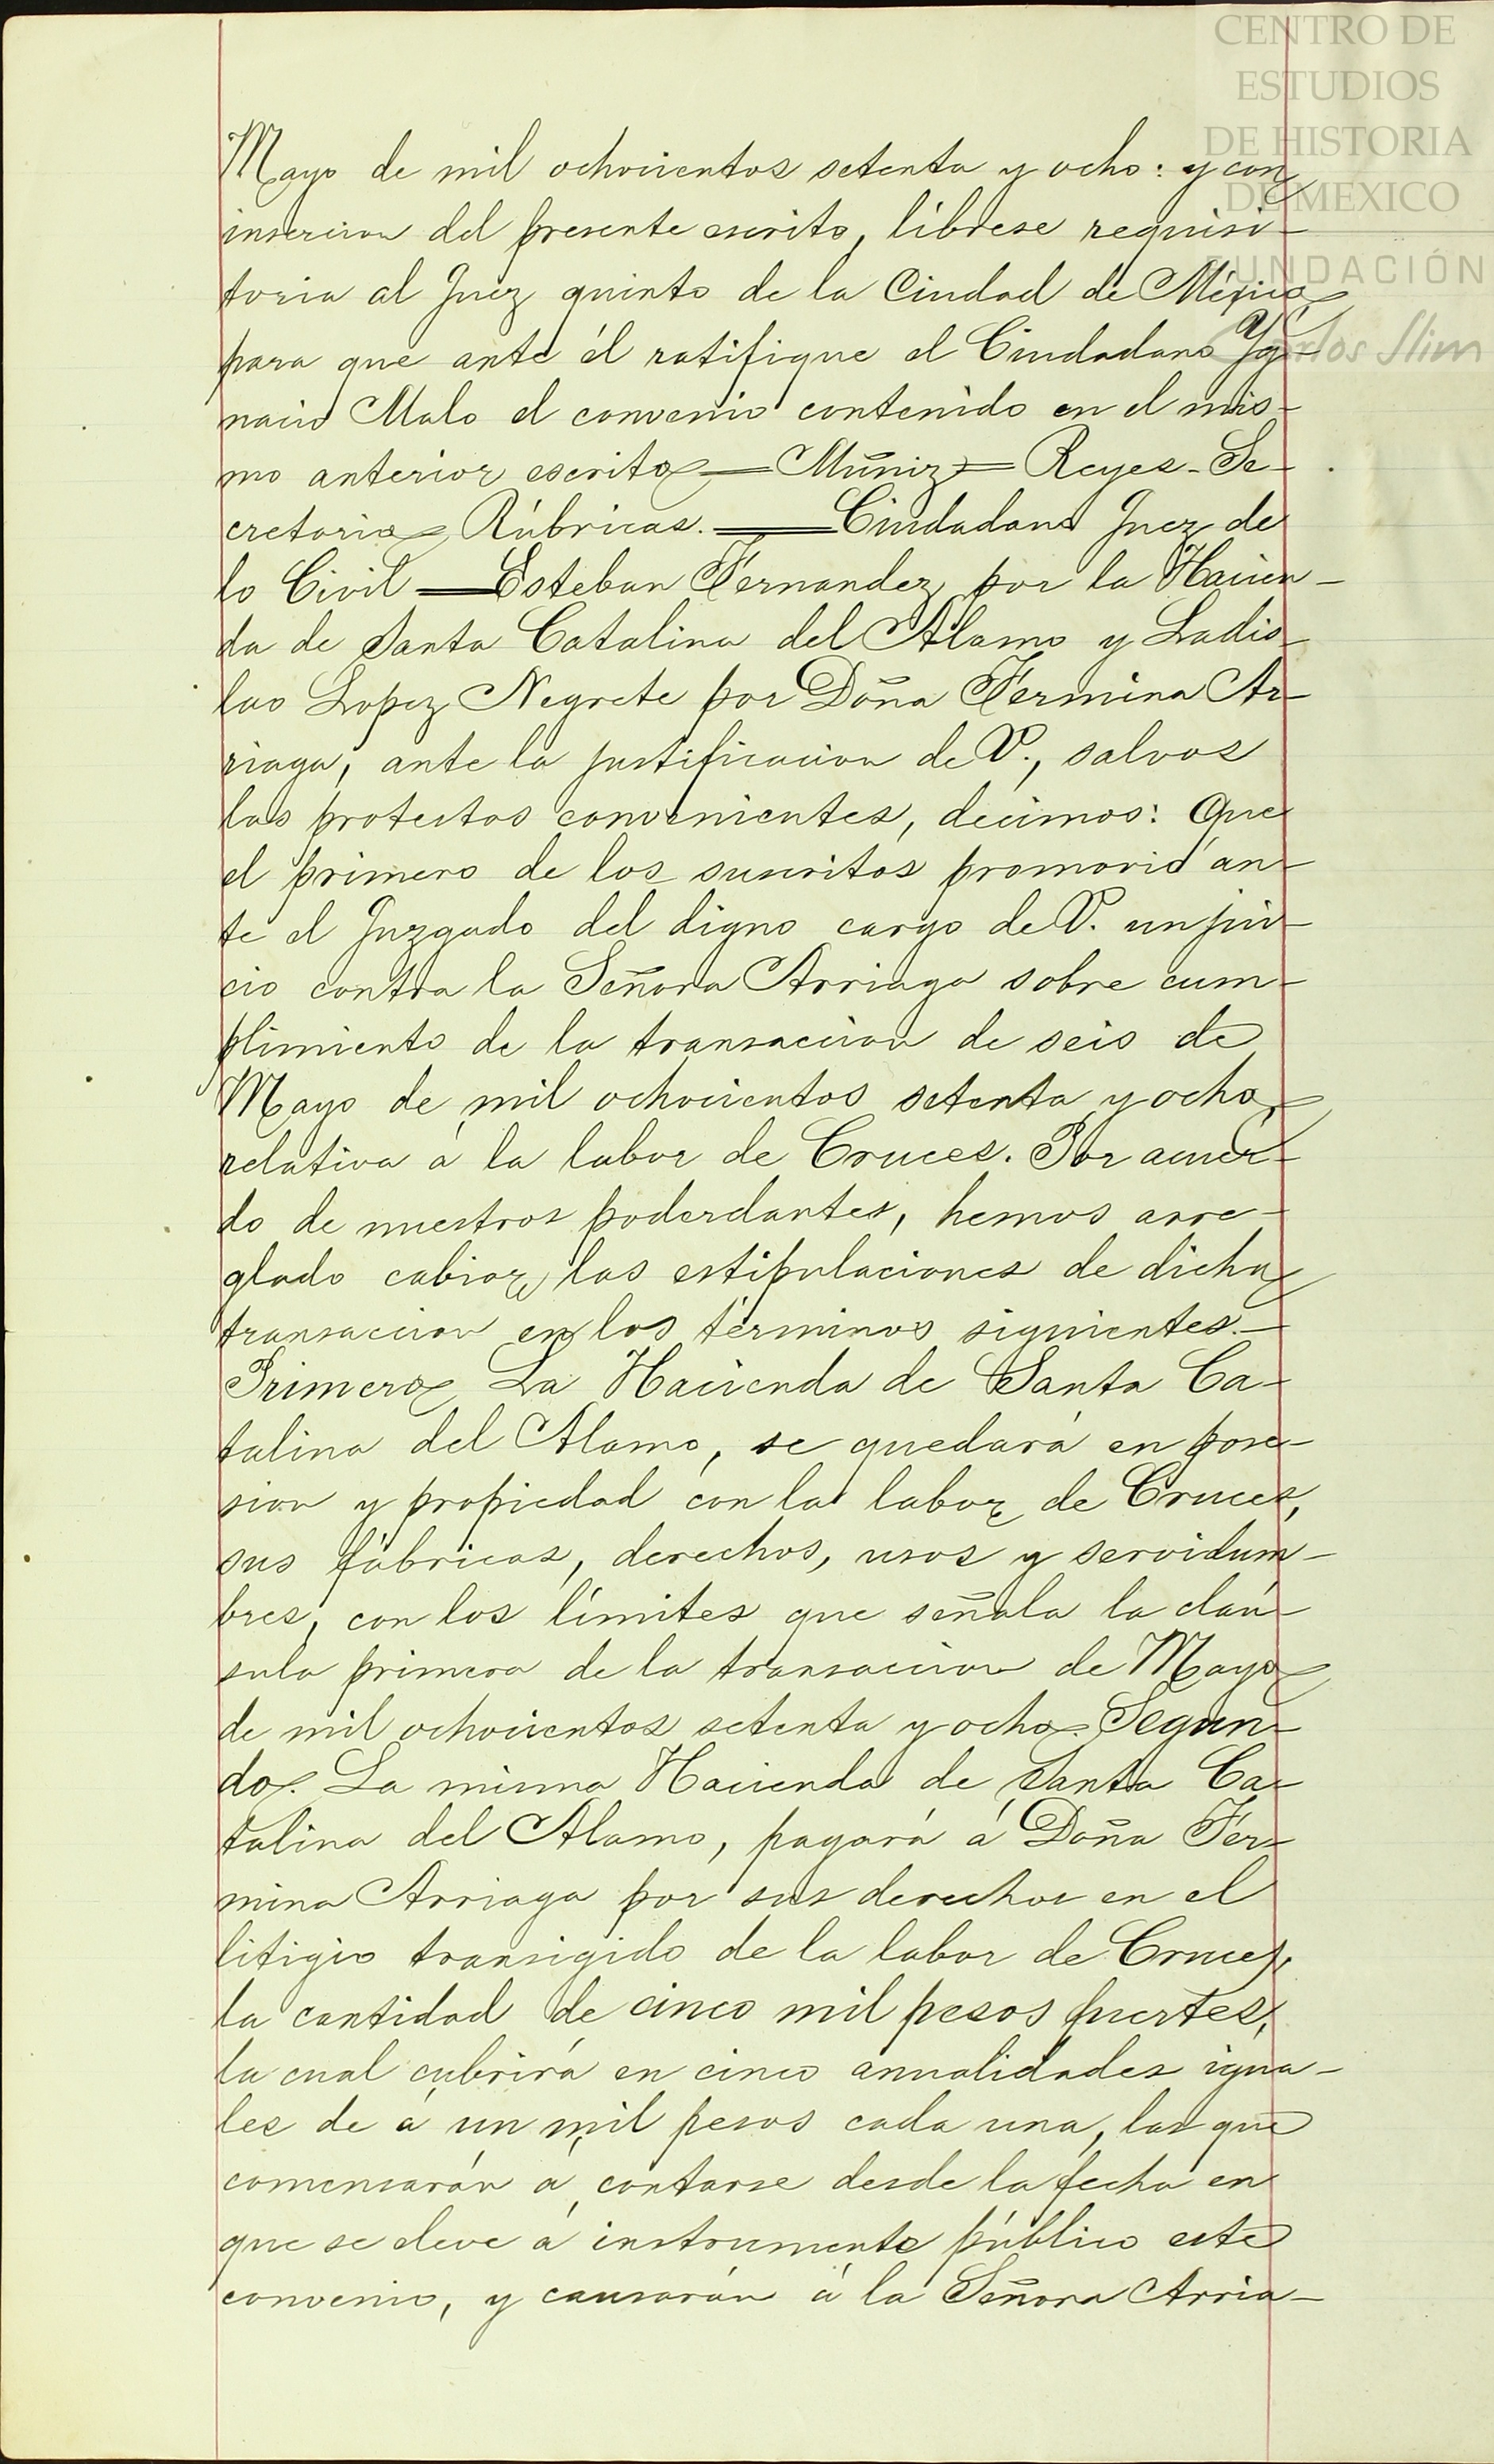 CENTRO DE
ESTUDIOS
DE HISTORIA
DE MÉXICO
FUNDACIÓN
Carlos Slim
Mayo de mil ochocientos setenta y ocho: y con
insercion del presente escrito, líbrese requisi-
toria al Juez quinto de la Ciudad de México
para que ante él ratifique el Ciudadano Yg-
nacio Malo el convenio contenido en el mis-
mo anterior escrito — Muñiz = Reyes - Se-
cretario Rúbricas. — Ciudadano Juez de
lo Civil — Esteban Fernandez por la Hacien-
da de Santa Catalina del Alamo y Ladis-
lao Lopez Negrete por Doña Fermina Ar-
riaga, ante la justificacion de V., salvos
las protestas convenientes, decimos: Que
el primero de los suscritos promovió an-
te el Juzgado del digno cargo de V. un jui-
cio contra la Señora Arriaga sobre cum-
plimiento de la transaccion de seis de
Mayo de mil ochocientos setenta y ocho,
relativa á la labor de Cruces. Por acuer-
do de nuestros poderdantes, hemos arre-
glado cabiar las estipulaciones de dicha
transaccion en los términos siguientes.—
Primero. La Hacienda de Santa Ca-
talina del Alamo, se quedará en pose-
sion y propiedad con la labor de Cruces,
sus fábricas, derechos, usos y servidum-
bres, con los límites que señala la cláu-
sula primera de la transaccion de Mayo
de mil ochocientos setenta y ocho. Segun-
do. La misma Hacienda de Santa Ca-
talina del Alamo, pagará á Doña Fer-
mina Arriaga por sus derechos en el
litigio transigido de la labor de Cruces,
la cantidad de cinco mil pesos fuertes,
la cual cubrirá en cinco anualidades igua-
les de á un mil pesos cada una, las que
comensarán á contarse desde la fecha en
que se eleve á instrumento público este
convenio, y causarán á la Señora Arria-